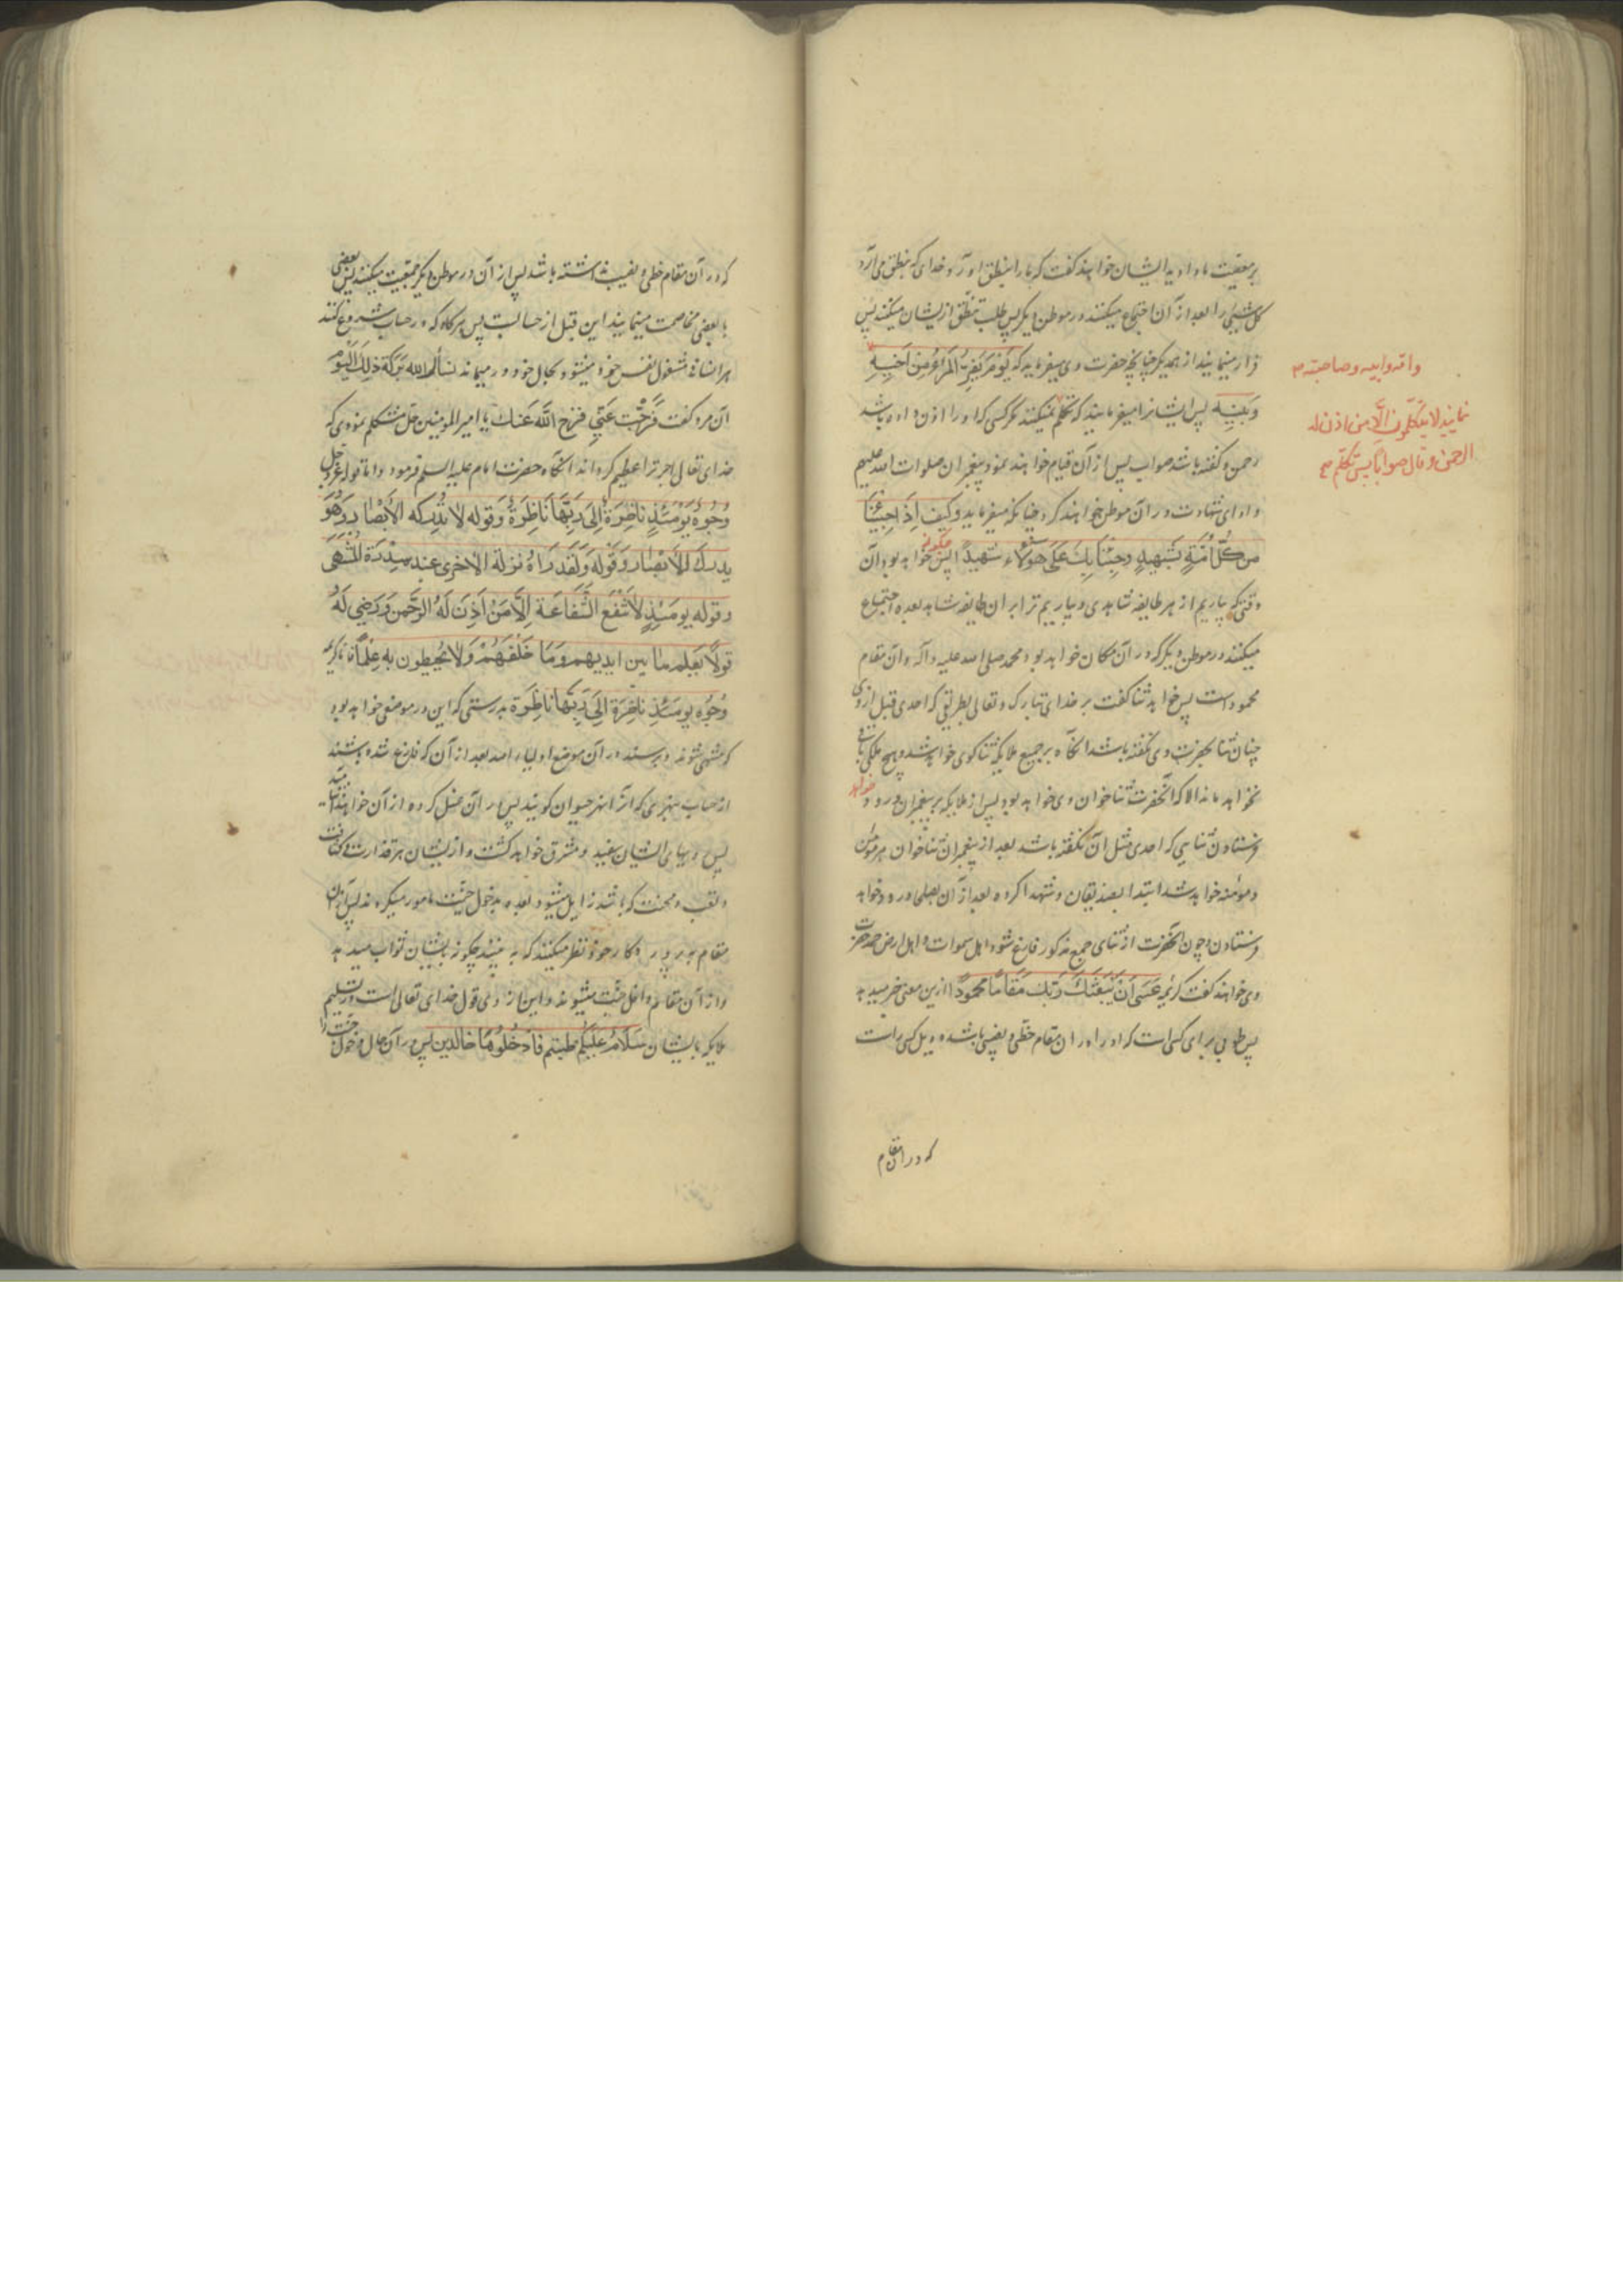 بر معصیت ما داد به ایشان خواهند گفت که ما را بنطق آورد خدای که بنطق می آرد
کل شیئی را بعد از آن اجتماع میکنند در موطن دیگر پس طلب تنطق از ایشان میکنند پس
فرار مینمایند از همدیگر چنانچه حضرت وی میفرماید که یَومَ یَفِرُّ المَرءُ مِن اَخیهِ
وَبَنیهِ پس ایشانرا میفرمایند که تکلم نمیکنند مگر کسی که او را اذن داده باشد
رحمن و گفته باشد صواب پس از آن قیام خواهند نمود پیغمبران صلوات الله علیهم
و ادای شهادت در آن موطن خواهند کرد چنانکه میفرماید وَکَیفَ اِذَا جِئنَا
مِن کُلِّ اُمَّةٍ بِشَهیدٍ وَجِئنَا بِکَ عَلَی هٰؤُلاءِ شَهیداً پس چگونه خواهد بود آن
وقتی که بیاریم از هر طایفه شاهدی و بیاریم ترا بر ان طایفه شاهد بعده اجتماع
میکنند در موطن دیگر که در آن مکان خواهد بود محمد صلی الله علیه وآله وآن مقام
محمود است پس خواهد ثنا گفت بر خدای تبارک و تعالی بطریقی که احدی قبل از وی
چنان ثنا بحضرت وی نگفته باشد آنگاه بر جمیع ملایکه ثنا گوی خواهد شد و هیچ ملکی باقی
نخواهد ماند الا که آنحضرت ثنا خوان وی خواهد بود پس از ملایکه بر پیغمبران درود خواهد
فرستادن ثنایی که احدی مثل آن نگفته باشد بعد از پیغمبران ثنا خوان هر مؤمن
و مؤمنه خواهد شد ابتدا بصدیقان و شهدا کرده بعد از آن بصلحا درود خواهد
فرستادن و چون آنحضرت از ثنای جمع مذکور فارغ شود اهل سموات و اهل ارض حمد حضرت
وی خواهند گفت کریمه عَسَی اَن یَبعَثَکَ رَبُّکَ مَقَاماً مَحمُوداً ازین معنی خبر میدهد
پس طوبی برای کسی است که او را در ان مقام حظی و نصیبی باشد و ویل کسی راست
که در ان مقام
وامّه وابیه وصاحبته صح
نمایند لا یتکلّمون الّا من اذن له
الرحمن وقال صواباً پس تکلّم صح
که در آن مقام حظی و نصیب نداشته باشد پس از آن در موطن دیگر جمعیت میکنند پس بعضی
با بعضی مخاصمت مینمایند این قبل از حسابست پس هرگاه که در حساب شروع کنند
هر انسانی مشغول نفس خود میشود و بحال خود در میماند نسأل الله بَرَکَةَ ذلِکَ الیَوم
آن مرد گفت فَرَّجتَ عَنّی فرّج اللّه عَنکَ یا امیر المومنین حل مشکلم نمودی که
خدای تعالی اجر ترا عظیم گرداند آنگاه حضرت امام علیه السلم فرمود و اما قوله عز و جل
وُجُوهٌ یَومَئِذٍ نَاضِرَةٌ اِلَی رَبِّهَا نَاظِرَةٌ وَقوله لا تُدرِکه الاَبصَار وَهُوَ
یدرک الاَبصَار وَقَوله وَلَقَد رَاهُ نزلةً الاخری عند سِدرَة المُنتَهی
وقوله یومَئِذٍ لا تَنفَع الشَّفاعَة اِلّا مَن اَذِنَ لَهُ الرَّحمن وَرَضِی لَهُ
قَولاً یَعلَم ما بین ایدیهم وَمَا خَلفَهُم وَلا یُحیطون به عِلماً اما کریمه
وُجُوه یومَئِذٍ ناضِرَة اِلَی رَبِّهَا ناظِرَة بدرستی که این در موضعی خواهد بود
که منتهی شوند و برسند در آن موضع اولیاء الله بعد از آن که فارغ شده باشند
از حساب بنهری که آنرا نهر حیوان گویند پس در آن غسل کرده از آن خواهند آشامید
پس رویهای ایشان سفید و مشرق خواهد گشت و از ایشان هر قذارت و کثافت
و تعب و محنت که باشد زایل میشود بعده بدخول جنّت مامور میگردند پس از آن
مقام به پروردگار خود نظر میکنند که به بینند چگونه بایشان ثواب میدهد
و از آن مقام داخل جنّت میشوند و این از روی قول خدای تعالی است در تسلیم
ملایکه بایشان سَلَامٌ عَلَیکُم طبتم فَادخُلُوهَا خالدین پس در آن حال دخول جنّت را